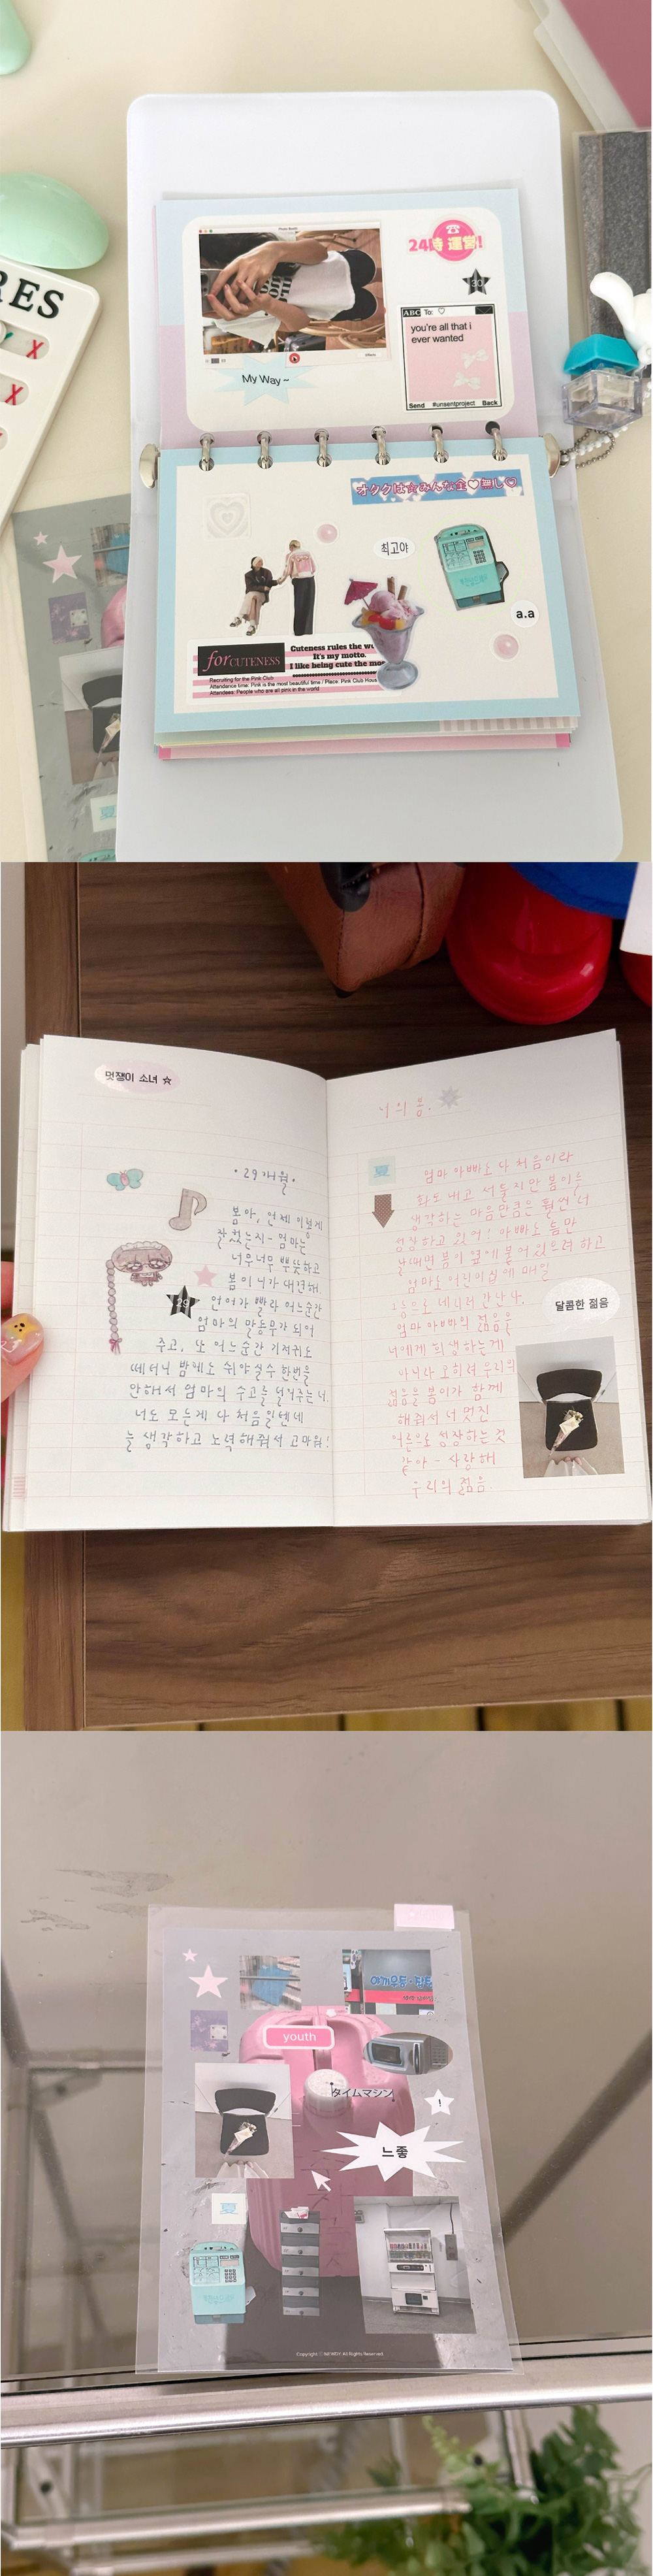 RES
Photo Booth
24時 運営!
30
ABC To: ♡
you're all that i
ever wanted
Send #unsentproject Back
My Way ~
オタクは☆みんな金♡無し♡
최고야
a.a
for CUTENESS
Cuteness rules the
It's my motto.
I like being cute the
Recruiting for the Pink Club
Attendance time: Pink is the most beautiful time / Place: Pink Club
Attendees: People who are all pink in the world
夏
멋쟁이 소녀 ☆
•29개월•
봄아, 언제 이렇게
컸는지- 엄마는
너무너무 뿌듯하고
봄이 니가 대견해.
29
언어가 빨라 어느순간
엄마의 말동무가 되어
주고, 또 어느순간 기저귀도
떼더니 밤에도 쉬야실수 한번을
안해서 엄마의 수고를 덜어주는 너.
너도 모든게 다 처음일텐데
늘 생각하고 노력해줘서 고마워!
너의 봄.
夏
엄마 아빠도 다 처음이라
화도 내고 서툴지만 봄이를
생각하는 마음만큼은 훨씬 더
성장하고 있어! 아빠도 틈만
날때면 봄이 옆에 붙어있으려 하고
엄마도 어린이집에 매일
데리러 간단다.
엄마 아빠의 젊음을
너에게 희생하는게
아니라 오히려 우리의
젊음을 봄이가 함께
해줘서 더 멋진
어른으로 성장하는 것
같아 - 사랑해
우리의 젊음.
달콤한 젊음
youth
タイムマシン
!
느좋
夏